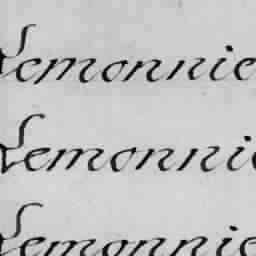 Lemonnie
Lemonni
Lemonnie